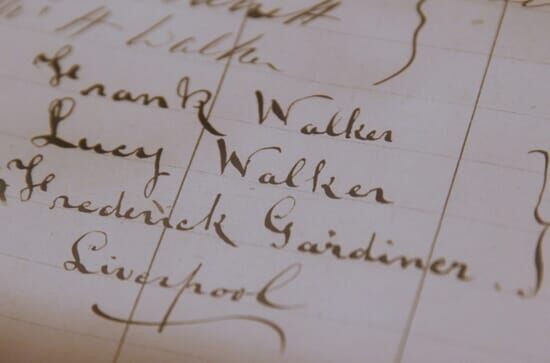 H Walker
Frank Walker
Lucy Walker
Frederick Gardiner
Liverpool